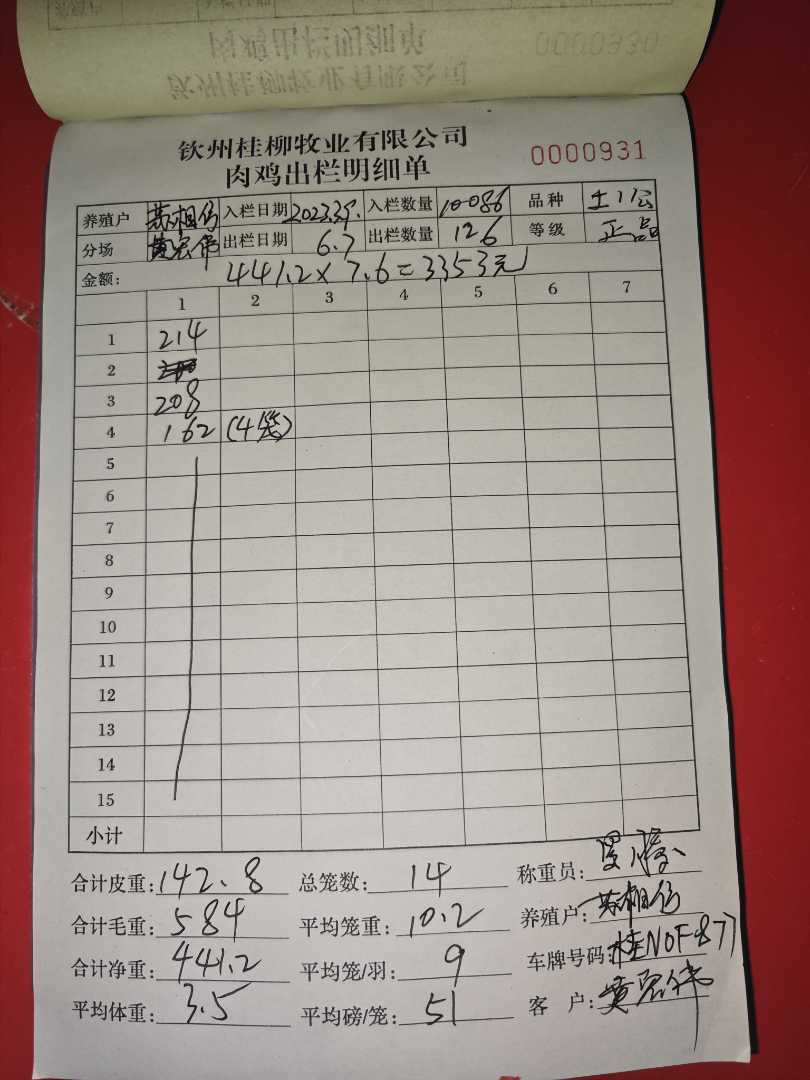 钦州桂柳牧业有限公司
肉鸡出栏明细单
0000931
养殖户 苏相伤 入栏日期 2023.3.9. 入栏数量 10086 品种 土11公
分场 黄宏伟 出栏日期 6.7 出栏数量 126 等级 正品
金额: 441.2×7.6=3353元
1 2 3 4 5 6 7
1 214
2
3 208
4 162 (4笼)
5
6
7
8
9
10
11
12
13
14
15
小计
合计皮重: 142.8 总笼数: 14 称重员:
合计毛重: 584 平均笼重: 10.2 养殖户: 苏相
合计净重: 441.2 平均笼/羽: 9 车牌号码: 桂N0F877
平均体重: 3.5 平均磅/笼: 51 客 户: 黄宏伟